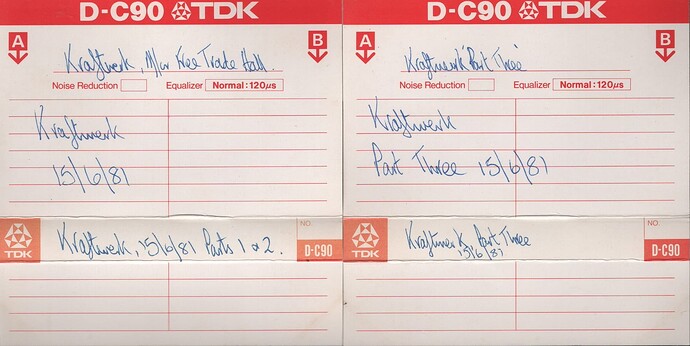 D-C90 TDK
A
B
Kraftwerk, M/cr Free Trade Hall.
Noise Reduction
Equalizer
Normal:120μs
Kraftwerk
15/6/81
TDK
Kraftwerk, 15/6/81 Parts 1 & 2.
NO.
D-C90
D-C90 TDK
A
B
Kraftwerk 'Part Three'
Noise Reduction
Equalizer
Normal:120μs
Kraftwerk
Part Three 15/6/81
TDK
Kraftwerk, Part Three
15/6/81
NO.
D-C90